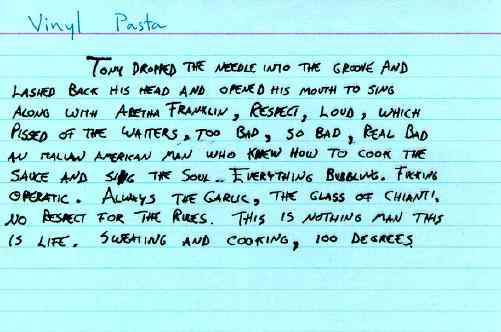 Vinyl Pasta
Tony dropped the needle into the groove and
lashed back his head and opened his mouth to sing
along with Aretha Franklin, Respect, loud, which
pissed of the waiters, too bad, so bad, real bad
an Italian American man who knew how to cook the
sauce and sing the soul.. Everything bubbling. Fucking
operatic. Always the garlic, the glass of Chianti.
No respect for the rules. This is nothing man this
is life. Sweating and cooking, 100 degrees